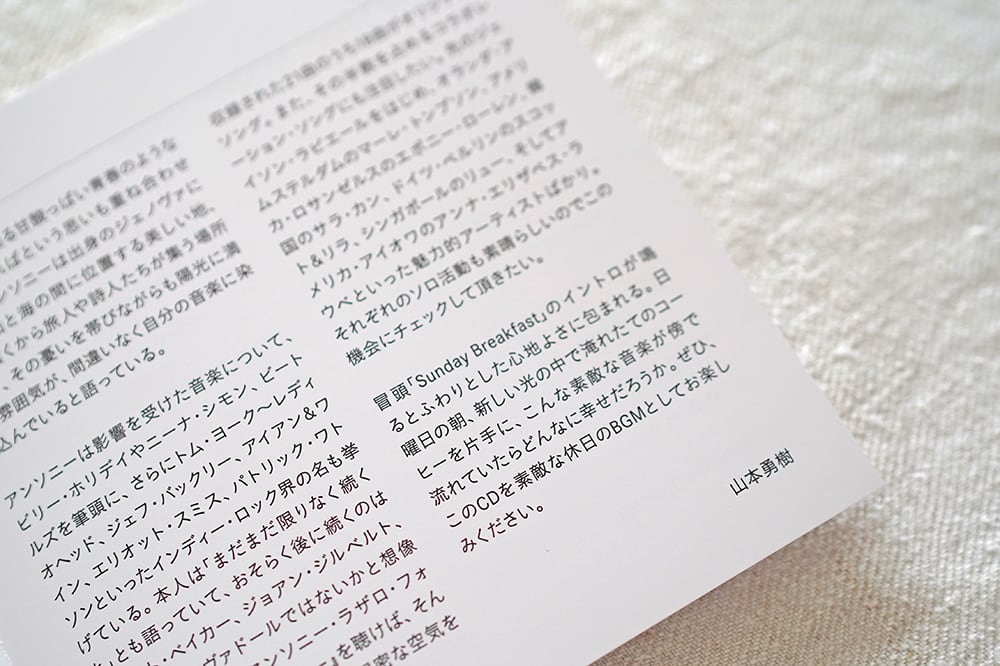 る甘酸っぱい青春のような
ばという思いも重ね合わせ
ンソニーは出身のジェノヴァに
と海の間に位置する美しい地、
くから旅人や詩人たちが集う場所
、その憂いを帯びながらも陽光に満
雰囲気が、間違いなく自分の音楽に染
込んでいると語っている。
アンソニーは影響を受けた音楽について、
ビリー・ホリデイやニーナ・シモン、ビート
ルズを筆頭に、さらにトム・ヨーク〜レディ
オヘッド、ジェフ・バックリー、アイアン&ワ
イン、エリオット・スミス、パトリック・ワト
ソンといったインディー・ロック界の名も挙
げている。本人は「まだまだ限りなく続く
」とも語っていて、おそらく後に続くのは
ト・ベイカー、ジョアン・ジルベルト、
ヴァドールではないかと想像
ンソニー・ラザロ・フォ
』を聴けば、そん
密な空気を
収録された21曲のうち18曲がオリジナ
ソング。また、その半数を占めるコラボレ
ーション・ソングにも注目したい。先のジェ
イソン・ラビエールをはじめ、オランダ・ア
ムステルダムのマーレ・トンプソン、アメリ
カ・ロサンゼルスのエボニー・ローレン、韓
国のサラ・カン、ドイツ・ベルリンのスコッ
ト&リラ、シンガポールのリュー、そしてア
メリカ・アイオワのアンナ・エリザベス・ラ
ウベといった魅力的アーティストばかり。
それぞれのソロ活動も素晴らしいのでこの
機会にチェックして頂きたい。
冒頭「Sunday Breakfast」のイントロが鳴
るとふわりとした心地よさに包まれる。日
曜日の朝、新しい光の中で淹れたてのコー
ヒーを片手に、こんな素敵な音楽が傍で
流れていたらどんなに幸せだろうか。ぜひ、
このCDを素敵な休日のBGMとしてお楽し
みください。
山本勇樹